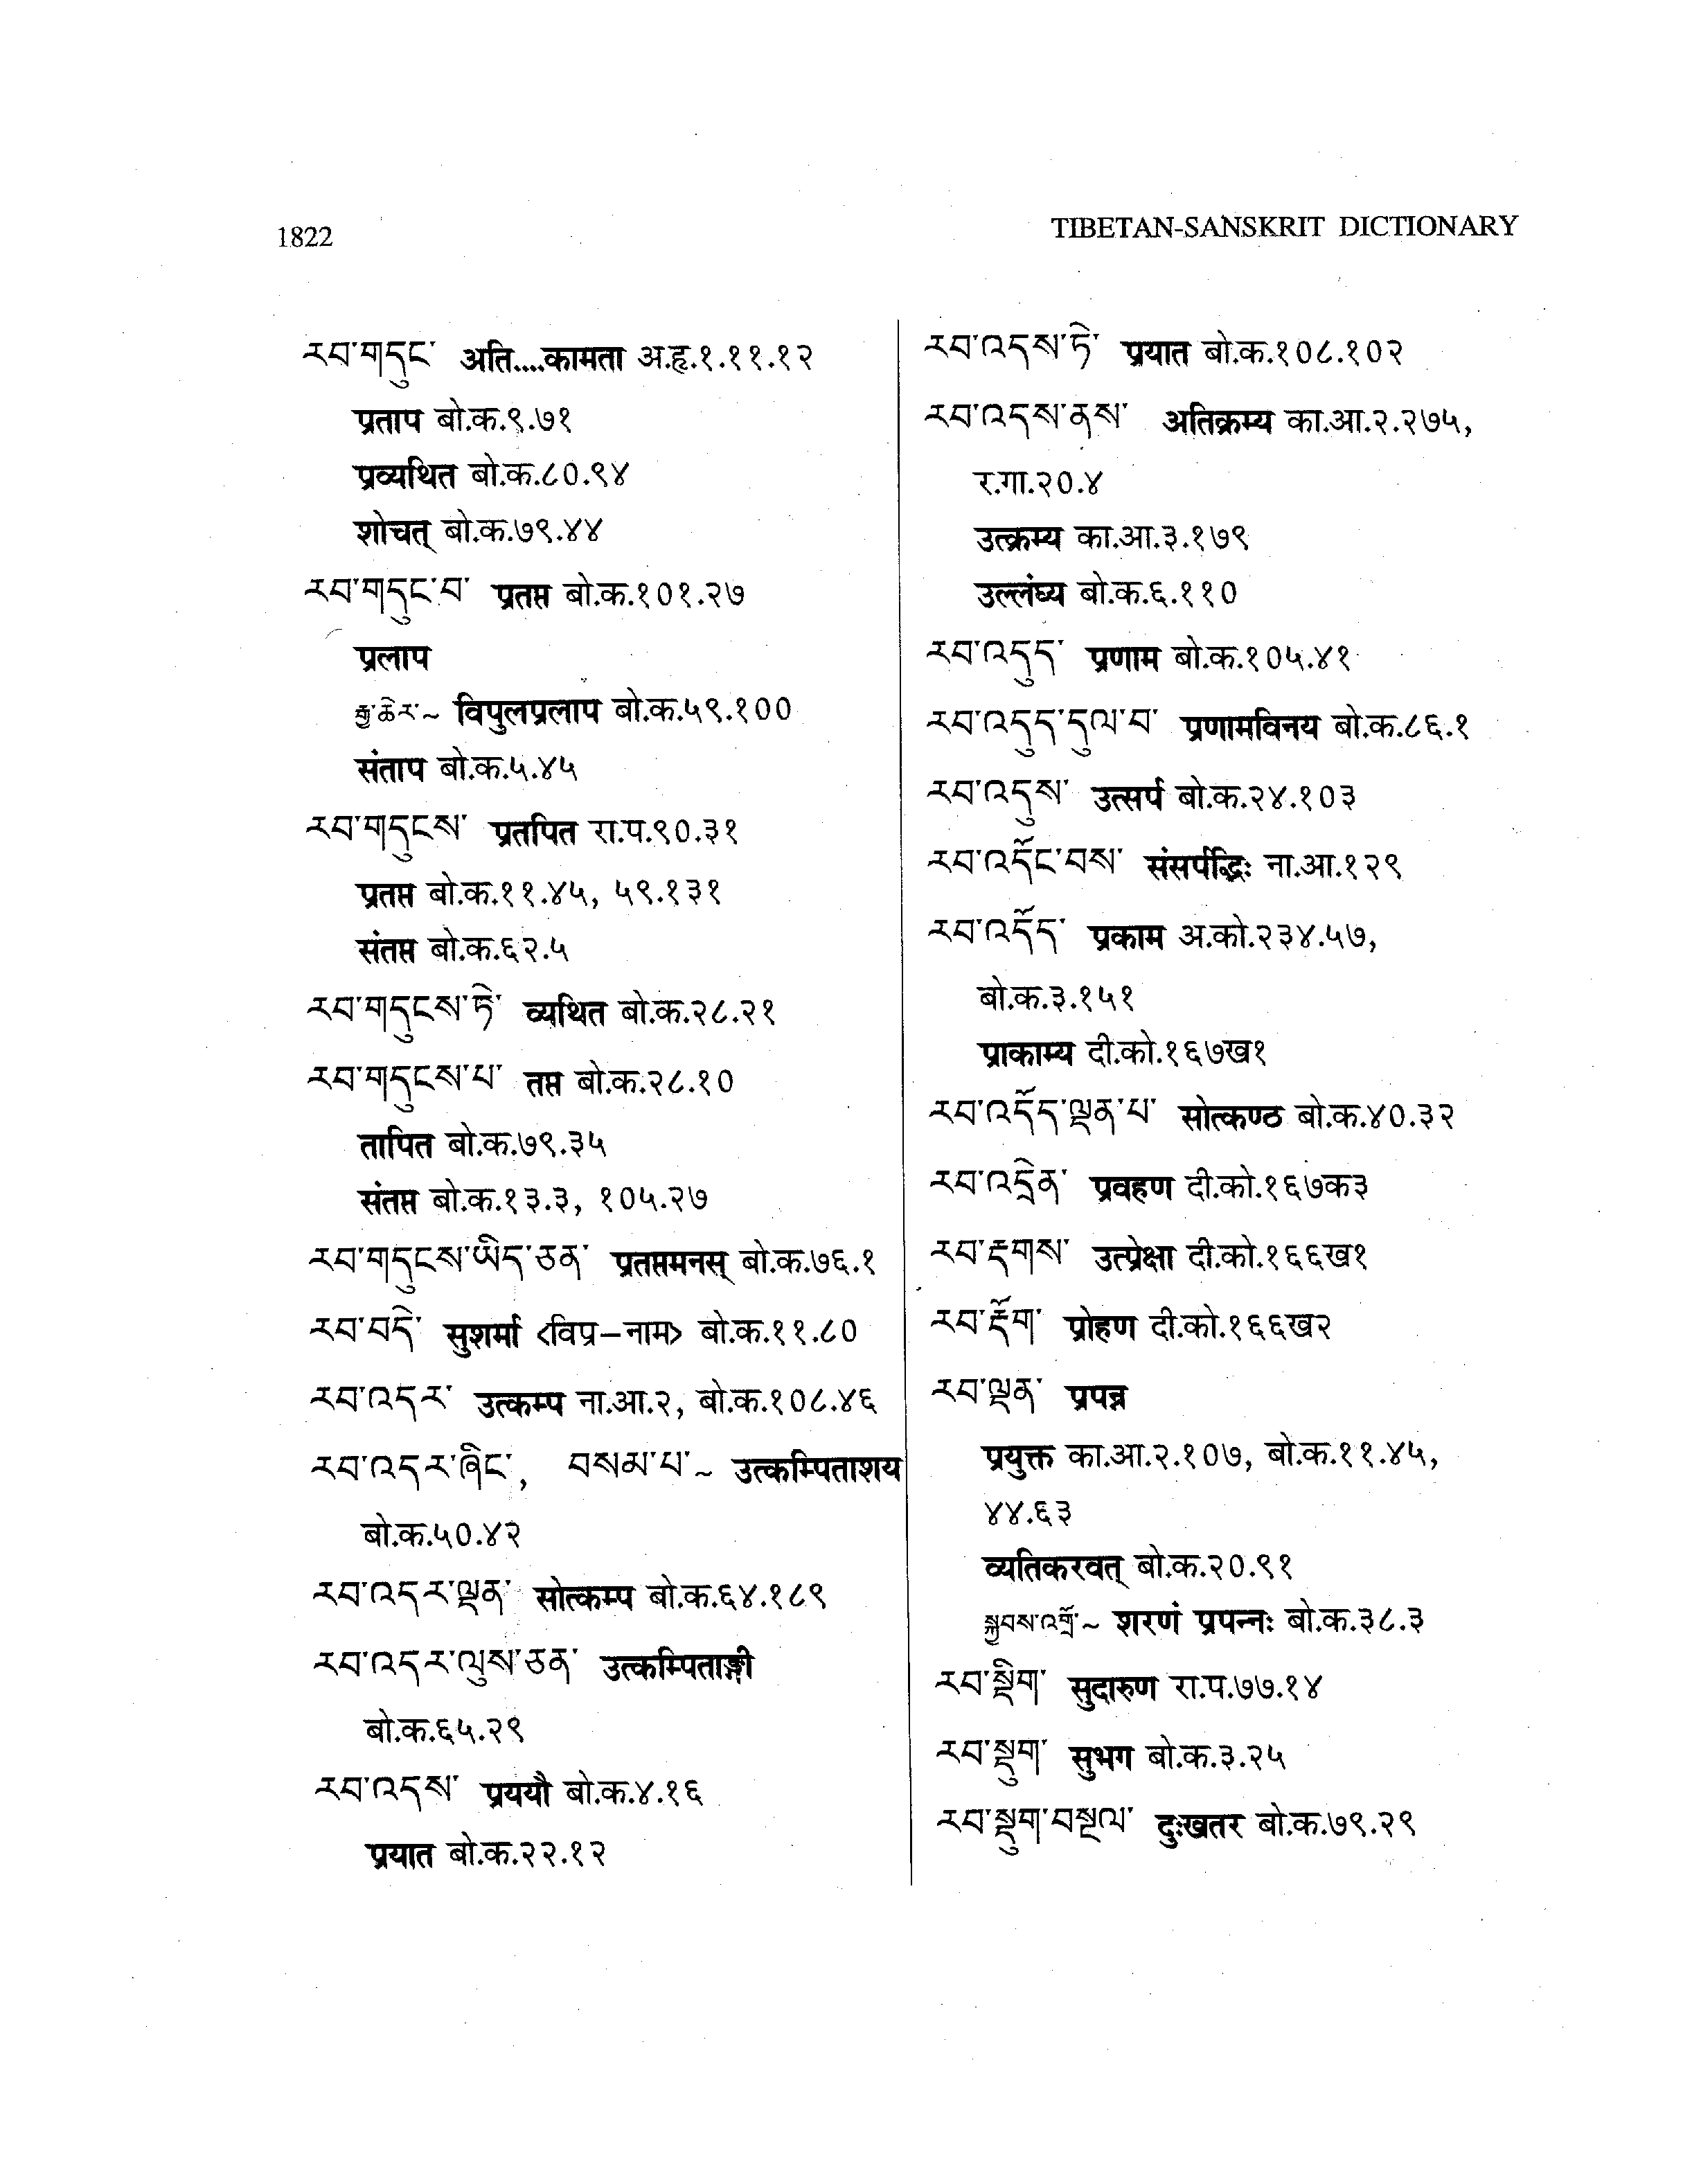 1822
TIBETAN-SANSKRIT DICTIONARY
རབ་གདུང་ अति....कामता अ.हृ.१.११.१२
प्रताप बो.क.९.७१
प्रव्यथित बो.क.८०.९४
शोचत् बो.क.७९.४४
རབ་གདུང་བ་ प्रतप्त बो.क.१०१.२७
प्रलाप
རྒྱ་ཆེར་~ विपुलप्रलाप बो.क.५९.१००
संताप बो.क.५.४५
རབ་གདུངས་ प्रतपित रा.प.९०.३१
प्रतप्त बो.क.११.४५, ५९.१३१
संतप्त बो.क.६२.५
རབ་གདུངས་ཏེ་ व्यथित बो.क.२८.२१
རབ་གདུངས་པ་ तप्त बो.क.२८.१०
तापित बो.क.७९.३५
संतप्त बो.क.१३.३, १०५.२७
རབ་གདུངས་ཡིད་ཅན་ प्रतप्तमनस् बो.क.७६.१
རབ་བདེ་ सुशर्मा <विप्र–नाम> बो.क.११.८०
རབ་འདར་ उत्कम्प ना.आ.२, बो.क.१०८.४६
རབ་འདར་ཞིང་, བསམ་པ་~ उत्कम्पिताशय
बो.क.५०.४२
རབ་འདར་ལྡན་ सोत्कम्प बो.क.६४.१८९
རབ་འདར་ལུས་ཅན་ उत्कम्पिताङ्गी
बो.क.६५.२९
རབ་འདས་ प्रययौ बो.क.४.१६
प्रयात बो.क.२२.१२
རབ་འདས་ཏེ་ प्रयात बो.क.१०८.१०२
རབ་འདས་ནས་ अतिक्रम्य का.आ.२.२७५,
र.गा.२०.४
उत्क्रम्य का.आ.३.१७९
उल्लंघ्य बो.क.६.११०
རབ་འདུད་ प्रणाम बो.क.१०५.४१
རབ་འདུད་དུལ་བ་ प्रणामविनय बो.क.८६.१
རབ་འདུས་ उत्सर्प बो.क.२४.१०३
རབ་འདོང་བས་ संसर्पद्भिः ना.आ.१२९
རབ་འདོད་ प्रकाम अ.को.२३४.५७,
बो.क.३.१५१
प्राकाम्य दी.को.१६७ख१
རབ་འདོད་ལྡན་པ་ सोत्कण्ठ बो.क.४०.३२
རབ་འདྲེན་ प्रवहण दी.को.१६७क३
རབ་རྟགས་ उत्प्रेक्षा दी.को.१६६ख१
རབ་རྟོག་ प्रोहण दी.को.१६६ख२
རབ་ལྡན་ प्रपन्न
प्रयुक्त का.आ.२.१०७, बो.क.११.४५,
४४.६३
व्यतिकरवत् बो.क.२०.९१
སྐྱབས་འགྲོ་~ शरणं प्रपन्नः बो.क.३८.३
རབ་སྡིག་ सुदारुण रा.प.७७.१४
རབ་སྡུག་ सुभग बो.क.३.२५
རབ་སྡུག་བསྔལ་ दुःखतर बो.क.७९.२९